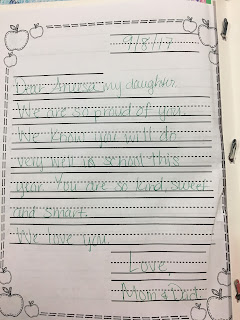 9/8/17
Dear my daughter.
We are so proud of you.
We know you will do
very well in school this
year. You are so kind, sweet
and smart.
We love you.
Love,
Mom & Dad